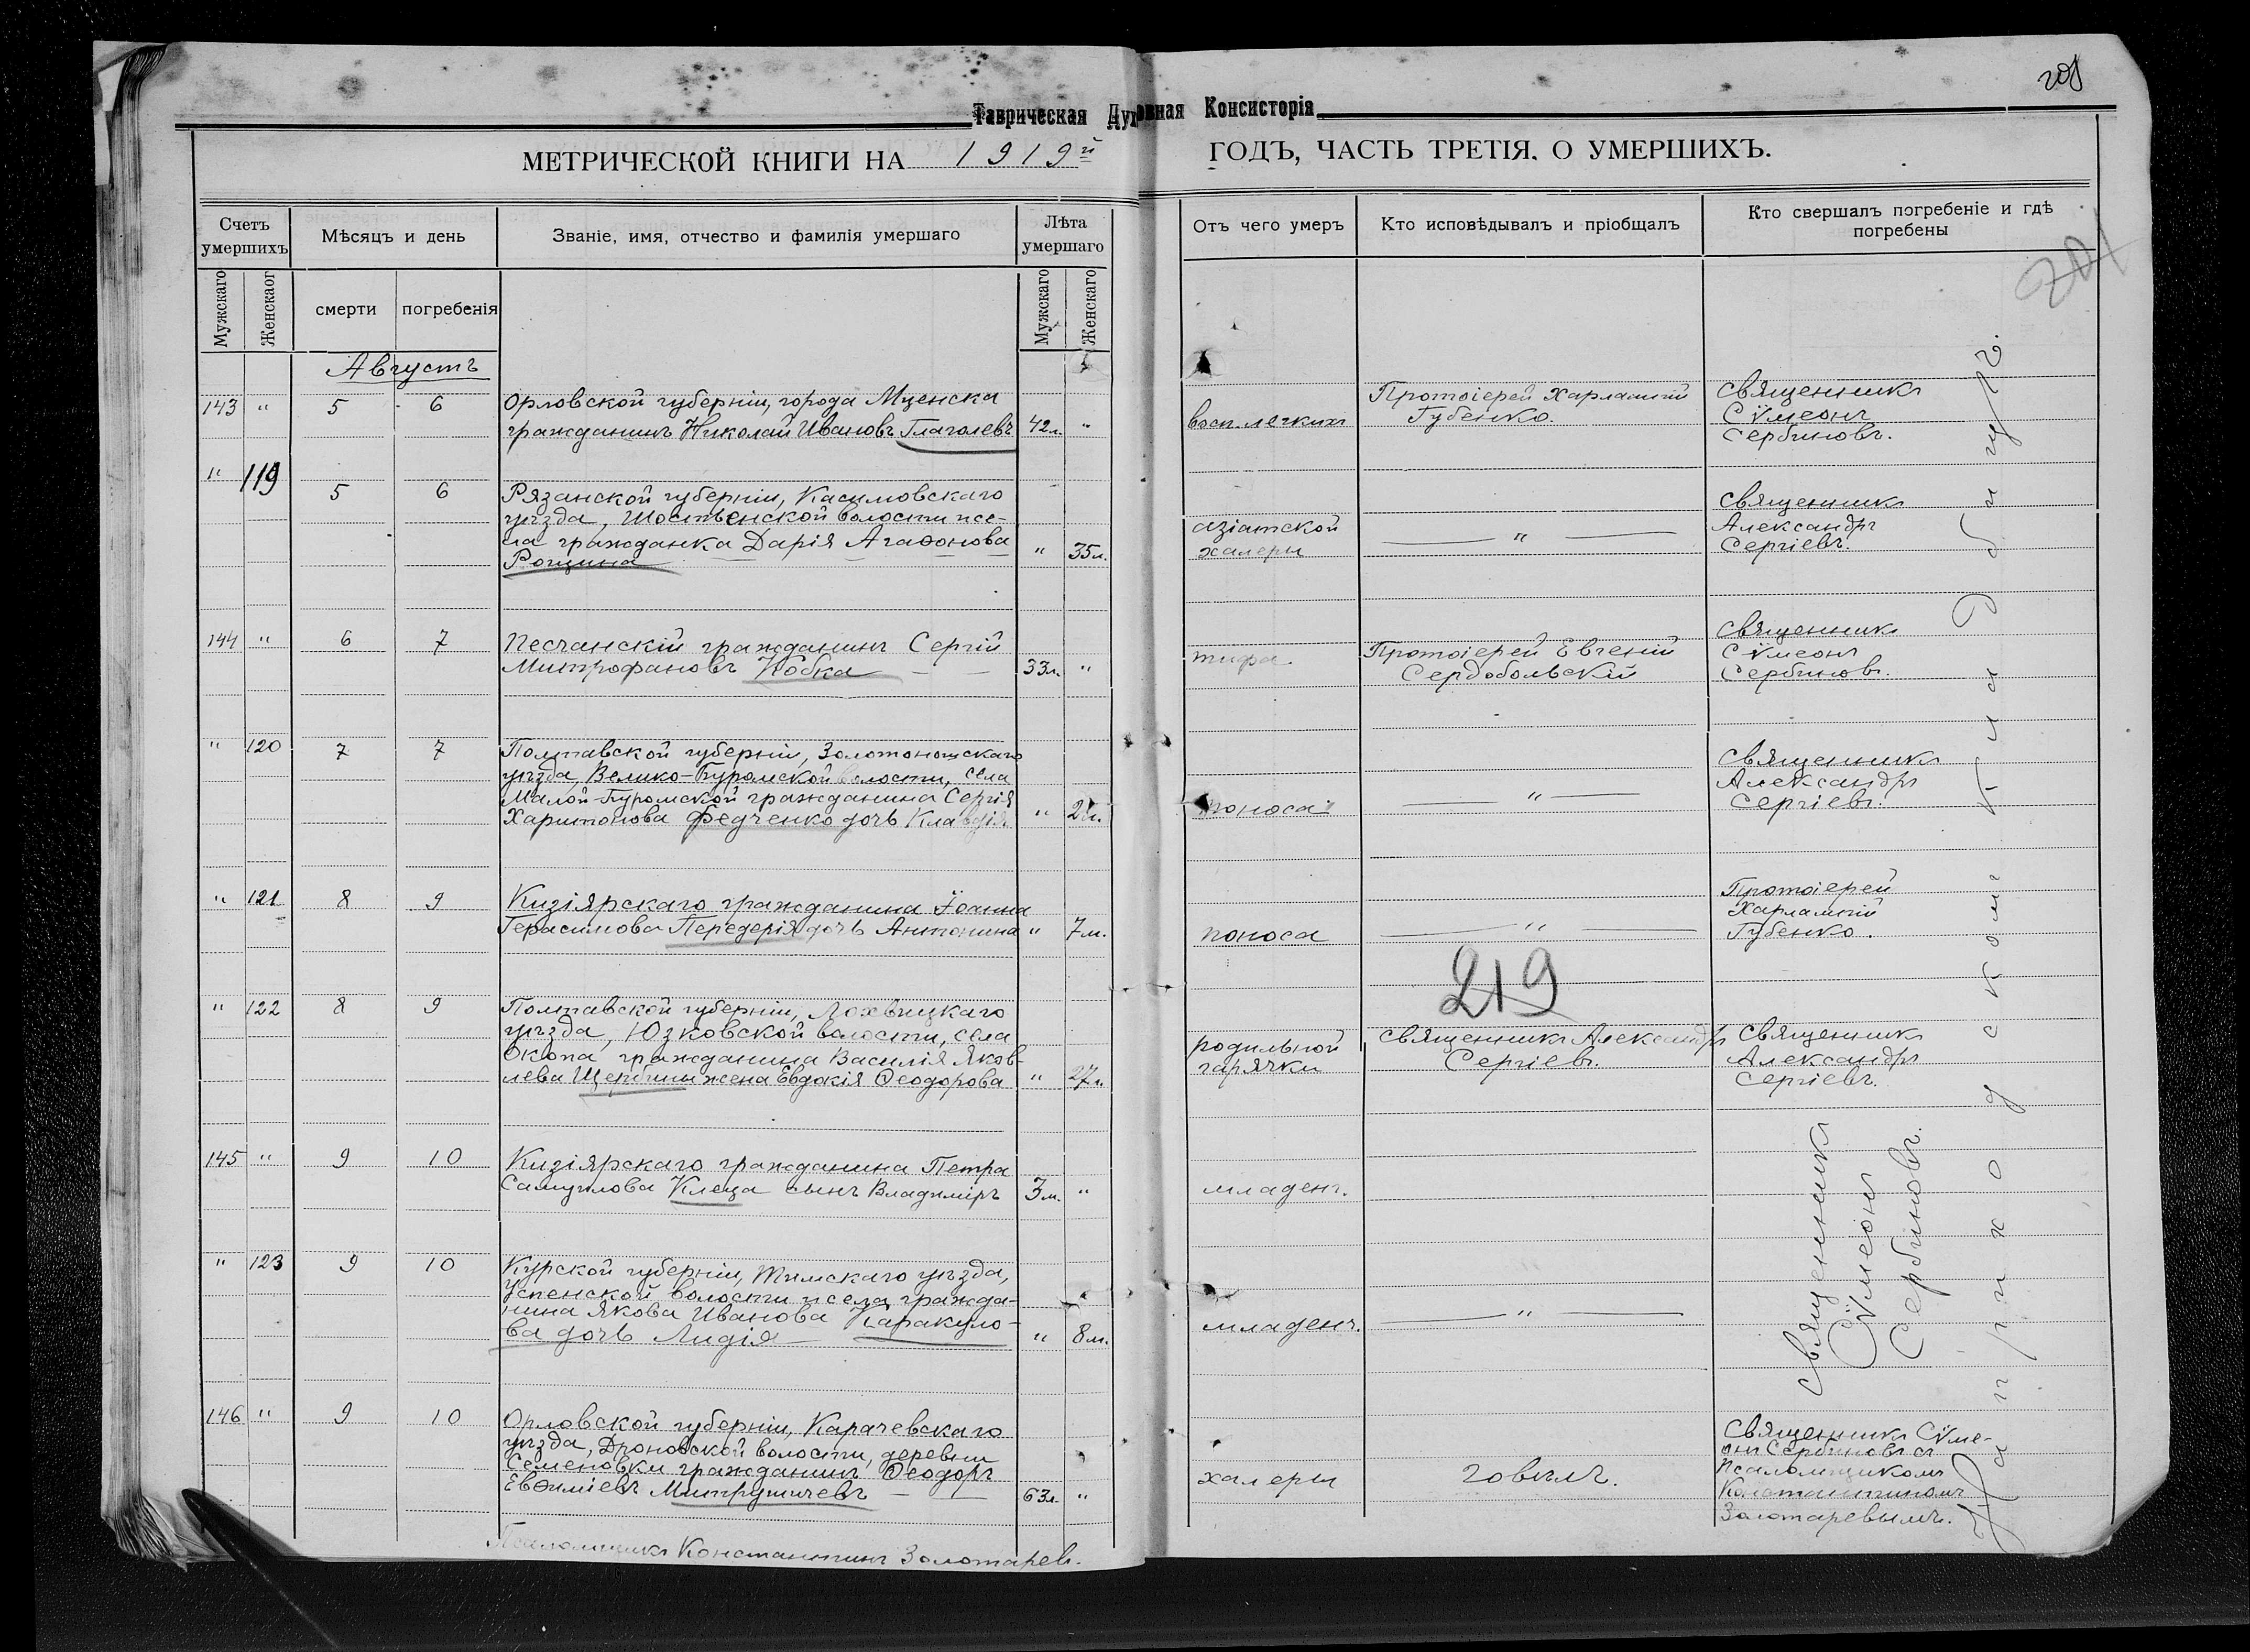 208
Таврическая Духовная Консисторія
МЕТРИЧЕСКОЙ КНИГИ НА 1919й ГОДЪ, ЧАСТЬ ТРЕТІЯ. О УМЕРШИХЪ.
Счетъ умершихъ
Мѣсяцъ и день
Званіе, имя, отчество и фамилія умершаго
Лѣта умершаго
Отъ чего умеръ
Кто исповѣдывалъ и пріобщалъ
Кто свершалъ погребеніе и гдѣ погребены
Мужскаго
Женскаог
смерти
погребенія
Мужскаго
Женскаго
Августъ
143 " 5 6
Орловской губерніи, города Мценска
гражданинъ Николай Ивановъ Глаголевъ 42л. "
восп. легкихъ
Протоіерей Харлампій
Губенко.
Священникъ
Сѵмеонъ
Сербиновъ.
" 119 5 6
Рязанской губерніи, Касимовскаго
уѣзда, волости
гражданка Дарія Агаѳонова
Рощина " 35л.
азіатской
халеры
"
Священникъ
Александръ
Сергіевъ.
144 " 6 7
Песчанскій гражданинъ Сергій
Митрофановъ Кобка 33л. "
тифа
Протоіерей Евгеній
Сердобольскій
Священникъ
Сѵмеонъ
Сербиновъ.
" 120 7 7
Полтавской губерніи, Золотоношскаго
уѣзда, Велико-Буромской волости, села
Малой-Буромской гражданина Сергія
Харитонова Федченко дочь Клавдія "
поноса
"
Священникъ
Александръ
Сергіевъ.
" 121 8 9
Кизіярскаго гражданина Іоанна
Герасимова Передерія дочь Антонина " 7м.
поноса
"
Протоіерей
Харлампій
Губенко.
219
" 122 8 9
Полтавской губерніи, Лохвицкаго
уѣзда, Юзковской волости, села
Окопа гражданина Василія Яков-
лева Щербины жена Евдокія Ѳеодорова " 27л.
родильной
гарячки
Священникъ Александръ
Сергіевъ.
Священникъ
Александръ
Сергіевъ.
145 " 9 10
Кизіярскаго гражданина Петра
Самуилова Клеца сынъ Владиміръ 3м. "
младенч.
" 123 9 10
Курской губерніи, Тимскаго уѣзда,
Успенской волости и села гражда-
нина Якова Иванова Каракуло-
ва дочь Лидія " 8м.
младенч.
"
Священникъ
Сѵмеонъ
Сербиновъ.
146 " 9 10
Орловской губерніи, Карачевскаго
уѣзда, Дроновской волости, деревни
Семеновки гражданинъ Ѳеодоръ
Евѳиміевъ 63л. "
халеры
говѣлъ.
Священникъ Сѵме-
онъ Сербиновъ съ
Псаломщикомъ
Константиномъ
Золотаревымъ.
На приходскомъ кладбищѣ.
Псаломщикъ Константинъ Золотаревъ.